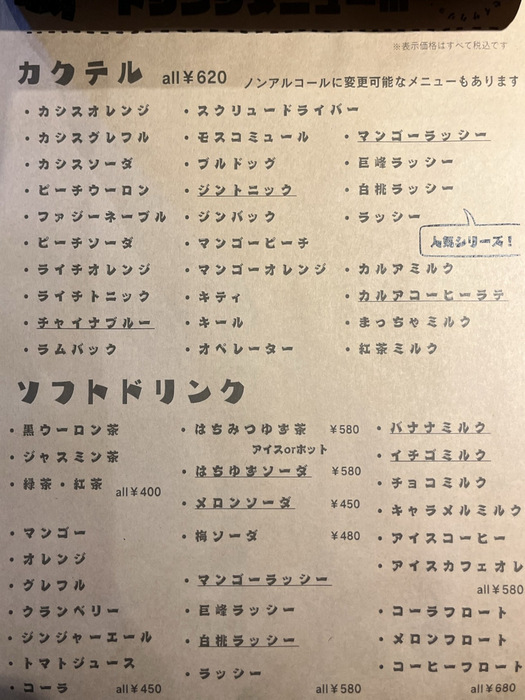 ドリンクメニュー!!!
※表示価格はすべて税込です
カクテル all¥620 ノンアルコールに変更可能なメニューもあります
・カシスオレンジ
・カシスグレフル
・カシスソーダ
・ピーチウーロン
・ファジーネーブル
・ピーチソーダ
・ライチオレンジ
・ライチトニック
・チャイナブルー
・ラムバック
・スクリュードライバー
・モスコミュール
・ブルドッグ
・ジントニック
・ジンバック
・マンゴーピーチ
・マンゴーオレンジ
・キティ
・キール
・オペレーター
・マンゴーラッシー
・巨峰ラッシー
・白桃ラッシー
・ラッシー
人気シリーズ!
・カルアミルク
・カルアコーヒーラテ
・まっちゃミルク
・紅茶ミルク
ソフトドリンク
・黒ウーロン茶
・ジャスミン茶
・緑茶・紅茶
all¥400
・マンゴー
・オレンジ
・グレフル
・クランベリー
・ジンジャーエール
・トマトジュース
・コーラ all¥450
・はちみつゆず茶 ¥580
アイスorホット
・はちゆずソーダ ¥580
・メロンソーダ ¥450
・梅ソーダ ¥480
・マンゴーラッシー
・巨峰ラッシー
・白桃ラッシー
・ラッシー
all¥580
・バナナミルク
・イチゴミルク
・チョコミルク
・キャラメルミルク
・アイスコーヒー
・アイスカフェオレ
all¥580
・コーラフロート
・メロンフロート
・コーヒーフロート
all¥680